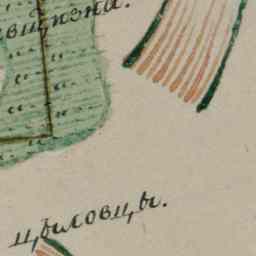 вщизна.
цыловцы.